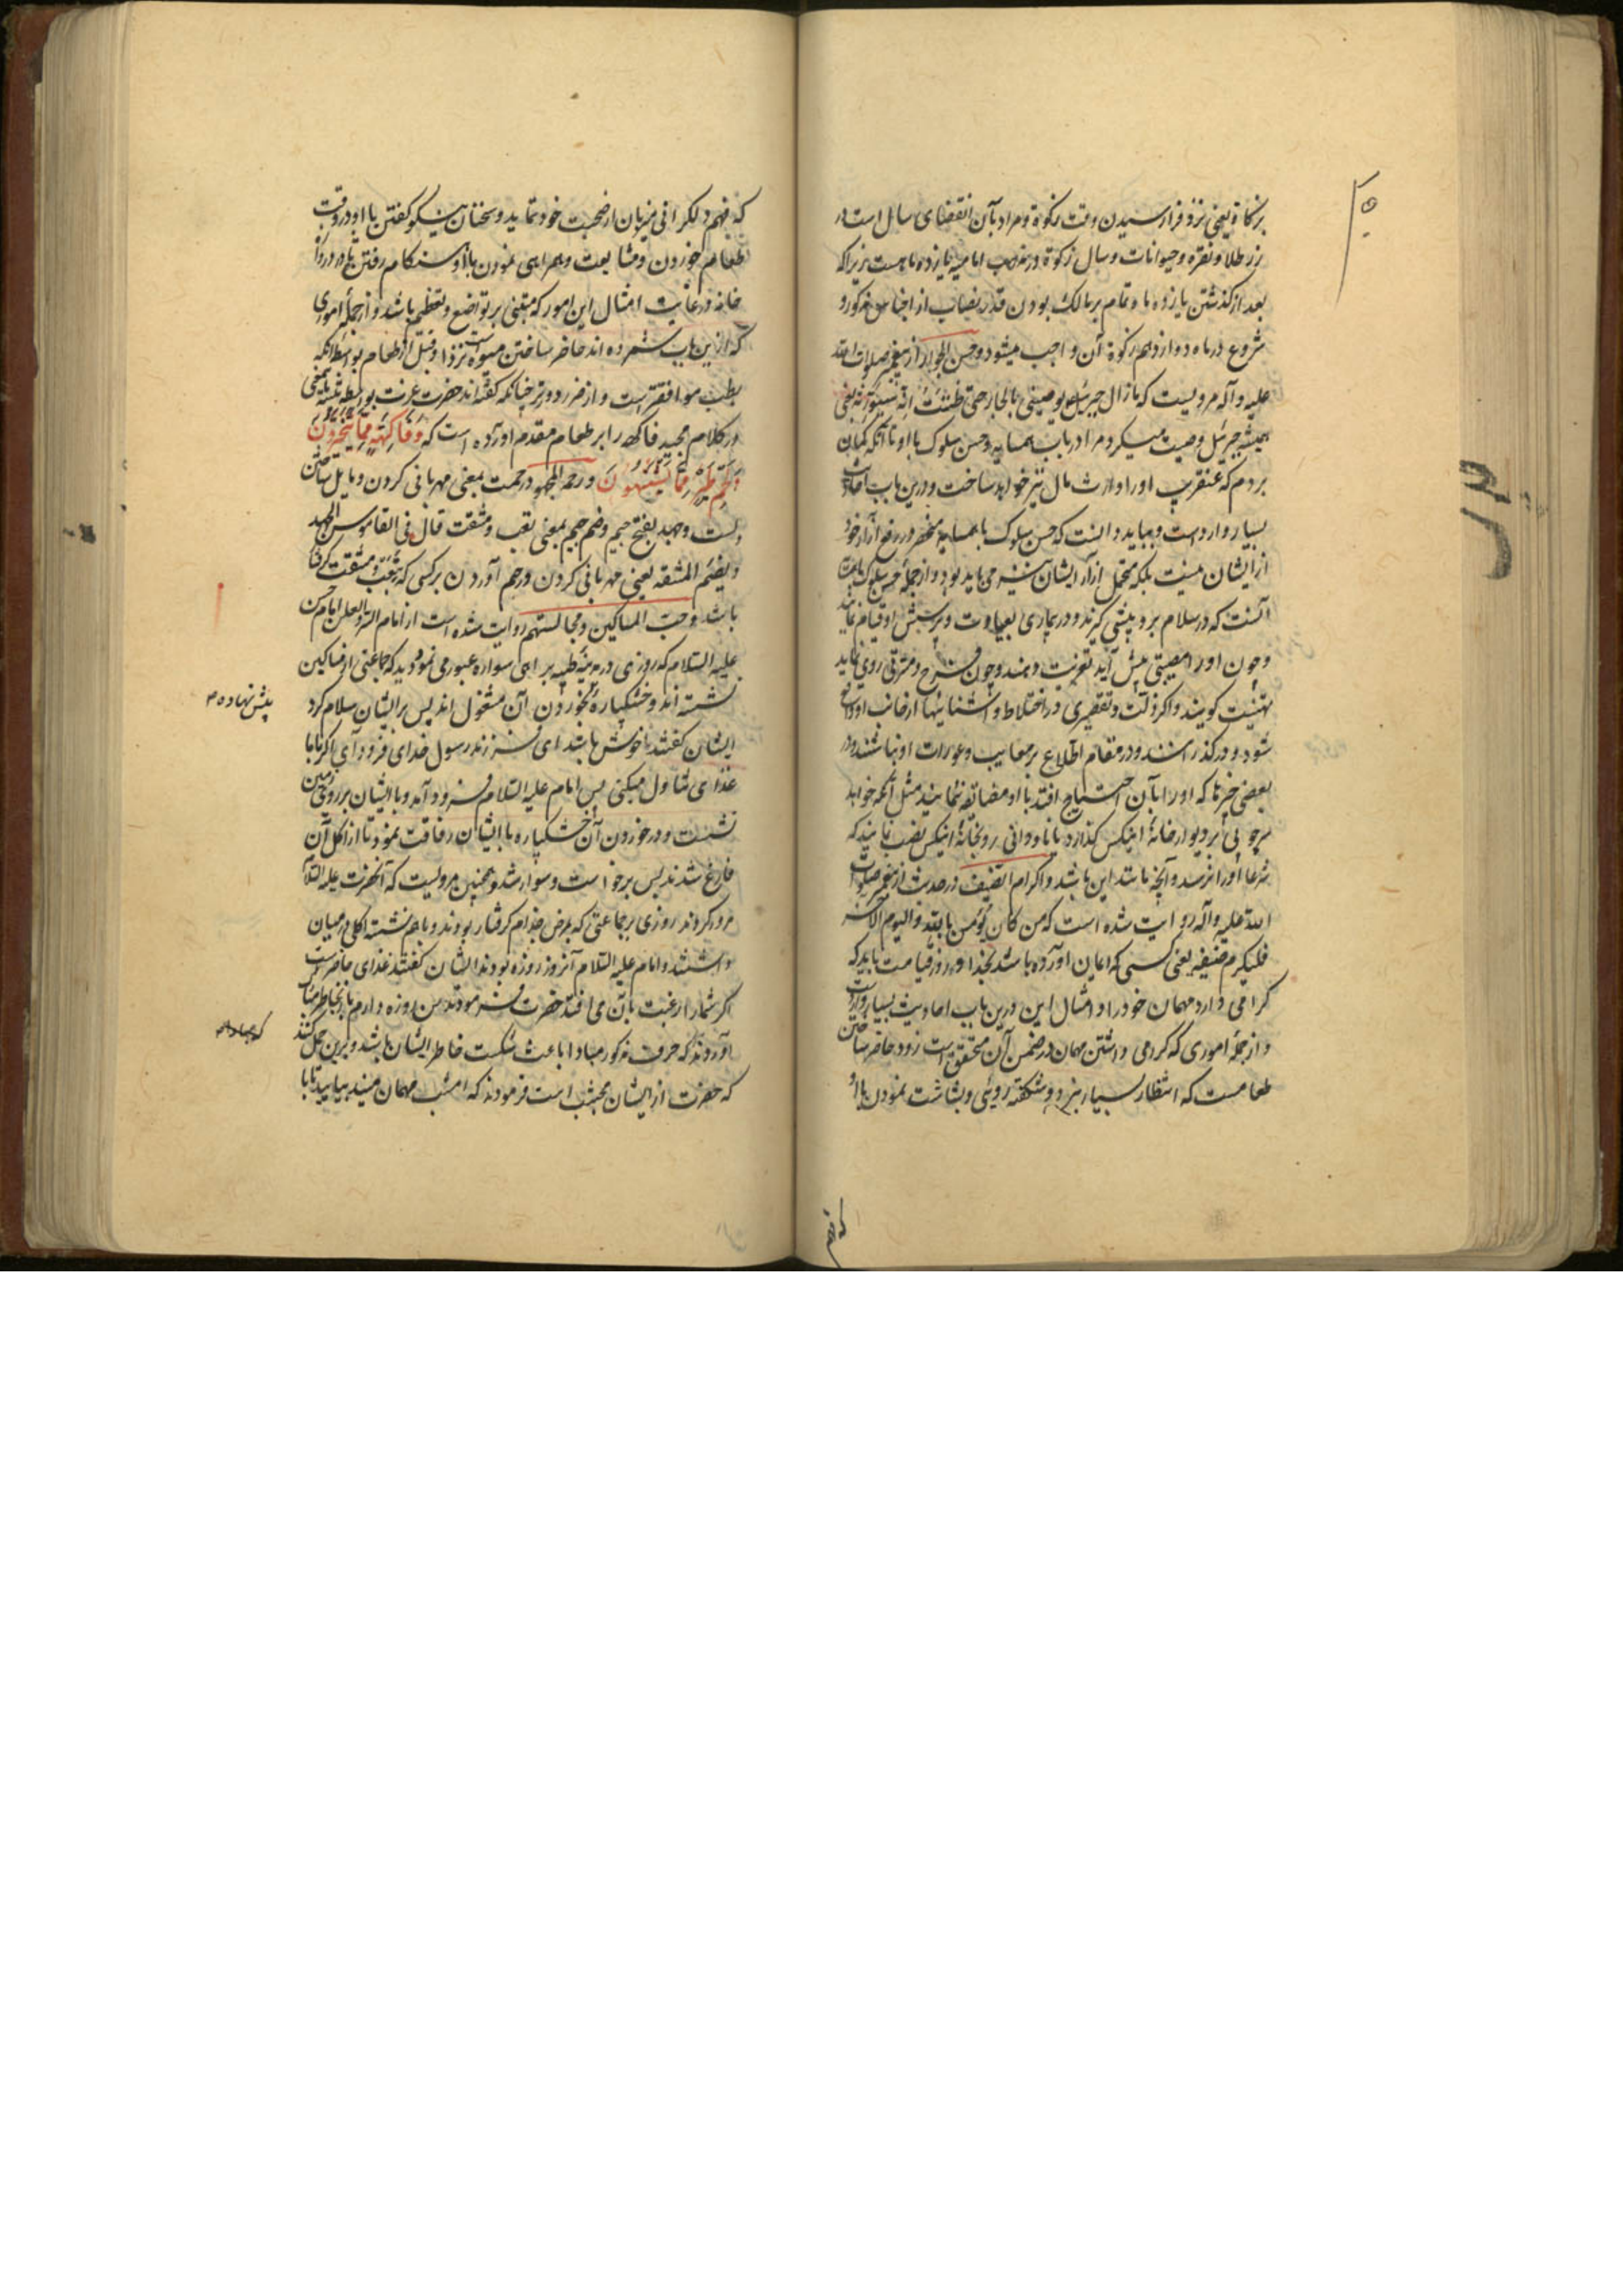 بزکاة یعنی نزد فرا رسیدن وقت زکوة و مراد بآن انقضای سال است در
زر طلا و نقره و حیوانات و سال زکوة در مذهب امامیه یازده ماهست زیرا که
بعد از گذشتن یازده ماه تمام بر مالک بودن قدر نصاب از اجناس مذکوره و
شروع در ماه دوازدهم زکوة آن واجب میشود و حسن الجوار از پیغمبر صلوات الله
علیه و آله مرویست که ما زال جبرئیل یوصینی بالجار حتی ظننت انه سیورثه یعنی
همیشه جبرئیل وصیت میکرد مرا در باب همسایه و حسن سلوک با او تا آنکه گمان
بردم که عنقریب او را وارث مال نیز خواهد ساخت و درین باب احادیث
بسیار وارد است و بباید دانست که حسن سلوک با همسایه منحصر در رفع آزار خود
از ایشان نیست بلکه تحمل ازار ایشان نیز می باید بود و از جمله حسن سلوک با همسایه
آنست که در سلام برو پیشی گیرند و در بیماری بعیادت و پرسش او قیام نمایند
و چون او را مصیبتی پیش آید تعزیت دهند و چون فرح و مسرتی روی نماید
تهنیت گویند و اگر زلت و تقصیری در اختلاط و آشنائیها از جانب او واقع
شود در گذرانند و در مقام اطلاع بر معایب و عورات او نباشند و در
بعضی چیزها که او را بآن احتیاج افتد با او مضایقه ننمایند مثل آنکه خواهد
سر چوبی بر دیوار خانهٔ اینکس گذارد یا ناودانی رو بخانهٔ اینکس نصب نماید که
شرعا او را نرسد و آنچه مانند این باشد و اکرام الضیف در حدیث از پیغمبر صلوات
الله علیه و آله روایت شده است که من کان یؤمن بالله و الیوم الآخر
فلیکرم ضیفه یعنی کسی که ایمان آورده باشد بخدا و روز قیامت باید که
گرامی دارد مهمان خود را و امثال این درین باب احادیث بسیار وارد است
و از جمله اموری که گرامی داشتن مهمان در ضمن آن متحقق است زود حاضر ساختن
طعامست که انتظار بسیار نبرد و شکفته روئی و بشاشت نمودن با او
که فهم دلگرانی میزبان از صحبت خود ننماید و سخنان نیکو گفتن با او در وقت
طعام خوردن و مشایعت و همراهی نمودن با او هنگام رفتن تا در دروازهٔ
خانه و رعایت امثال این امور که مبتنی بر تواضع و تعظیم باشد و از جمله اموری
که ازین باب شمرده اند حاضر ساختن میوه است نزد او قبل از طعام بواسطه آنکه
بطب موافقتر است و از ضرر دورتر چنانکه گفته اند حضرت عزت بواسطه تنبیه بر این معنی
در کلام مجید فاکهه را بر طعام مقدم آورده است که وَفَاكِهَةٍ مِمَّا يَتَخَيَّرُونَ
وَلَحْمِ طَيْرٍ مِمَّا يَشْتَهُونَ و رحم المجهود رحمت بمعنی مهربانی کردن و مایل ساختن
دلست و جهد بفتح جیم و ضم جیم بمعنی تعب و مشقت قال فی القاموس الجهد
و یضم المشقه یعنی مهربانی کردن و رحم آوردن بر کسی که بتعب و مشقت گرفتار
باشد و حب المساکین و مجالستهم روایت شده است از امام السر و العلن امام حسن
علیه السلام که روزی در مدینه طیبه بر راهی سواره عبور می نمود دید که جماعتی از مساکین
نشسته اند و خشکپارهٔ بخوردن آن مشغول اند پس بر ایشان سلام کرد
پیش نهاده
ایشان گفتند ناخوش باشد ای فرزند رسول خدای فرود آی اگر با ما
غذای تناول میکنی پس امام علیه السلام فرود آمد و با ایشان بر روی زمین
نشست و در خوردن آن خشکپاره با ایشان رفاقت نمود تا از اکل آن
فارغ شدند پس برخواست و سوار شد و همچنین مرویست که آنحضرت علیه السلام
مرور کردند روزی بر جماعتی که بمرض جذام گرفتار بودند و باهم نشسته اکلی در میان
داشتند و امام علیه السلام آنروز روزه بودند ایشان گفتند غذای ما حاضر است
اگر شما را رغبت بآن می افتد حضرت فرمودند من روزه دارم بخاطر مبارک
آوردند که حرف مذکور مبادا باعث شکست خاطر ایشان باشد و برین حمل کنند
که مبادا
که حضرت از ایشان مجتنب است فرمودند که امشب مهمان منید بیایید تا با